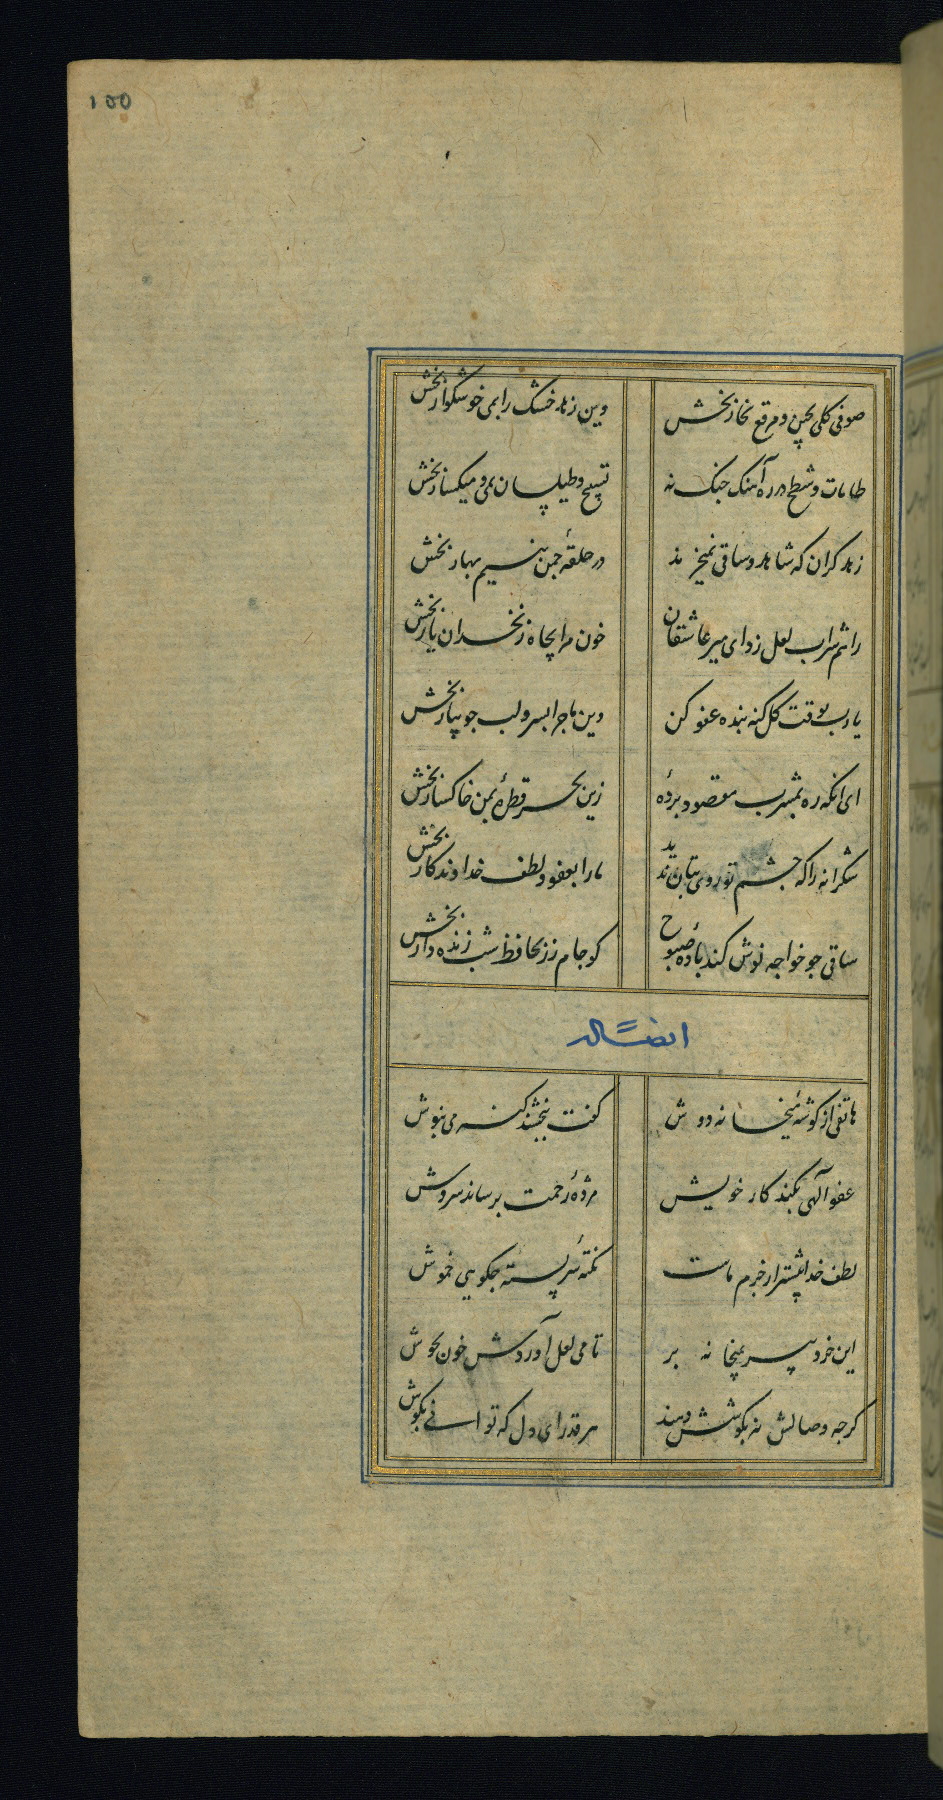 ۱۵۵
صوفی کلی بچین و مرقع بخار بخش وین زهد خشک را بمی خوشکوار بخش
طامات و شطح در ره آهنک چنک نه تسبیح و طیلسان بمی و میکسار بخش
زهد کران که شاهد و ساقی نمیخرند در حلقهٔ چمن بنسیم بهار بخش
راهم شراب لعل زد ای میر عاشقان خون مرا بچاه زنخدان یار بخش
یا رب بوقت کل کنه بنده عفو کن وین ماجرا بسرو لب جویبار بخش
ای آنکه ره بمشرب مقصود بردهٔ زین بحر قطرهٔ بمن خاکسار بخش
شکرانه را که چشم تو روی بتان ندید ما را بعفو و لطف خداوندکار بخش
ساقی چو خواجه نوش کند بادهٔ صبوح کو جام زر بحافظ شب زنده دار بخش
ایضاً له
هاتفی از کوشهٔ میخانه دوش کفت ببخشند کنه می بنوش
عفو الهی بکند کار خویش مژدهٔ رحمت برساند سروش
لطف خدا بیشتر از جرم ماست نکتهٔ سربسته چکویی خموش
این خرد پیر بمیخانه بر تا می لعل آوردش خون بجوش
کرچه وصالش نه بکوشش دهند هر قدر ای دل که توانی بکوش